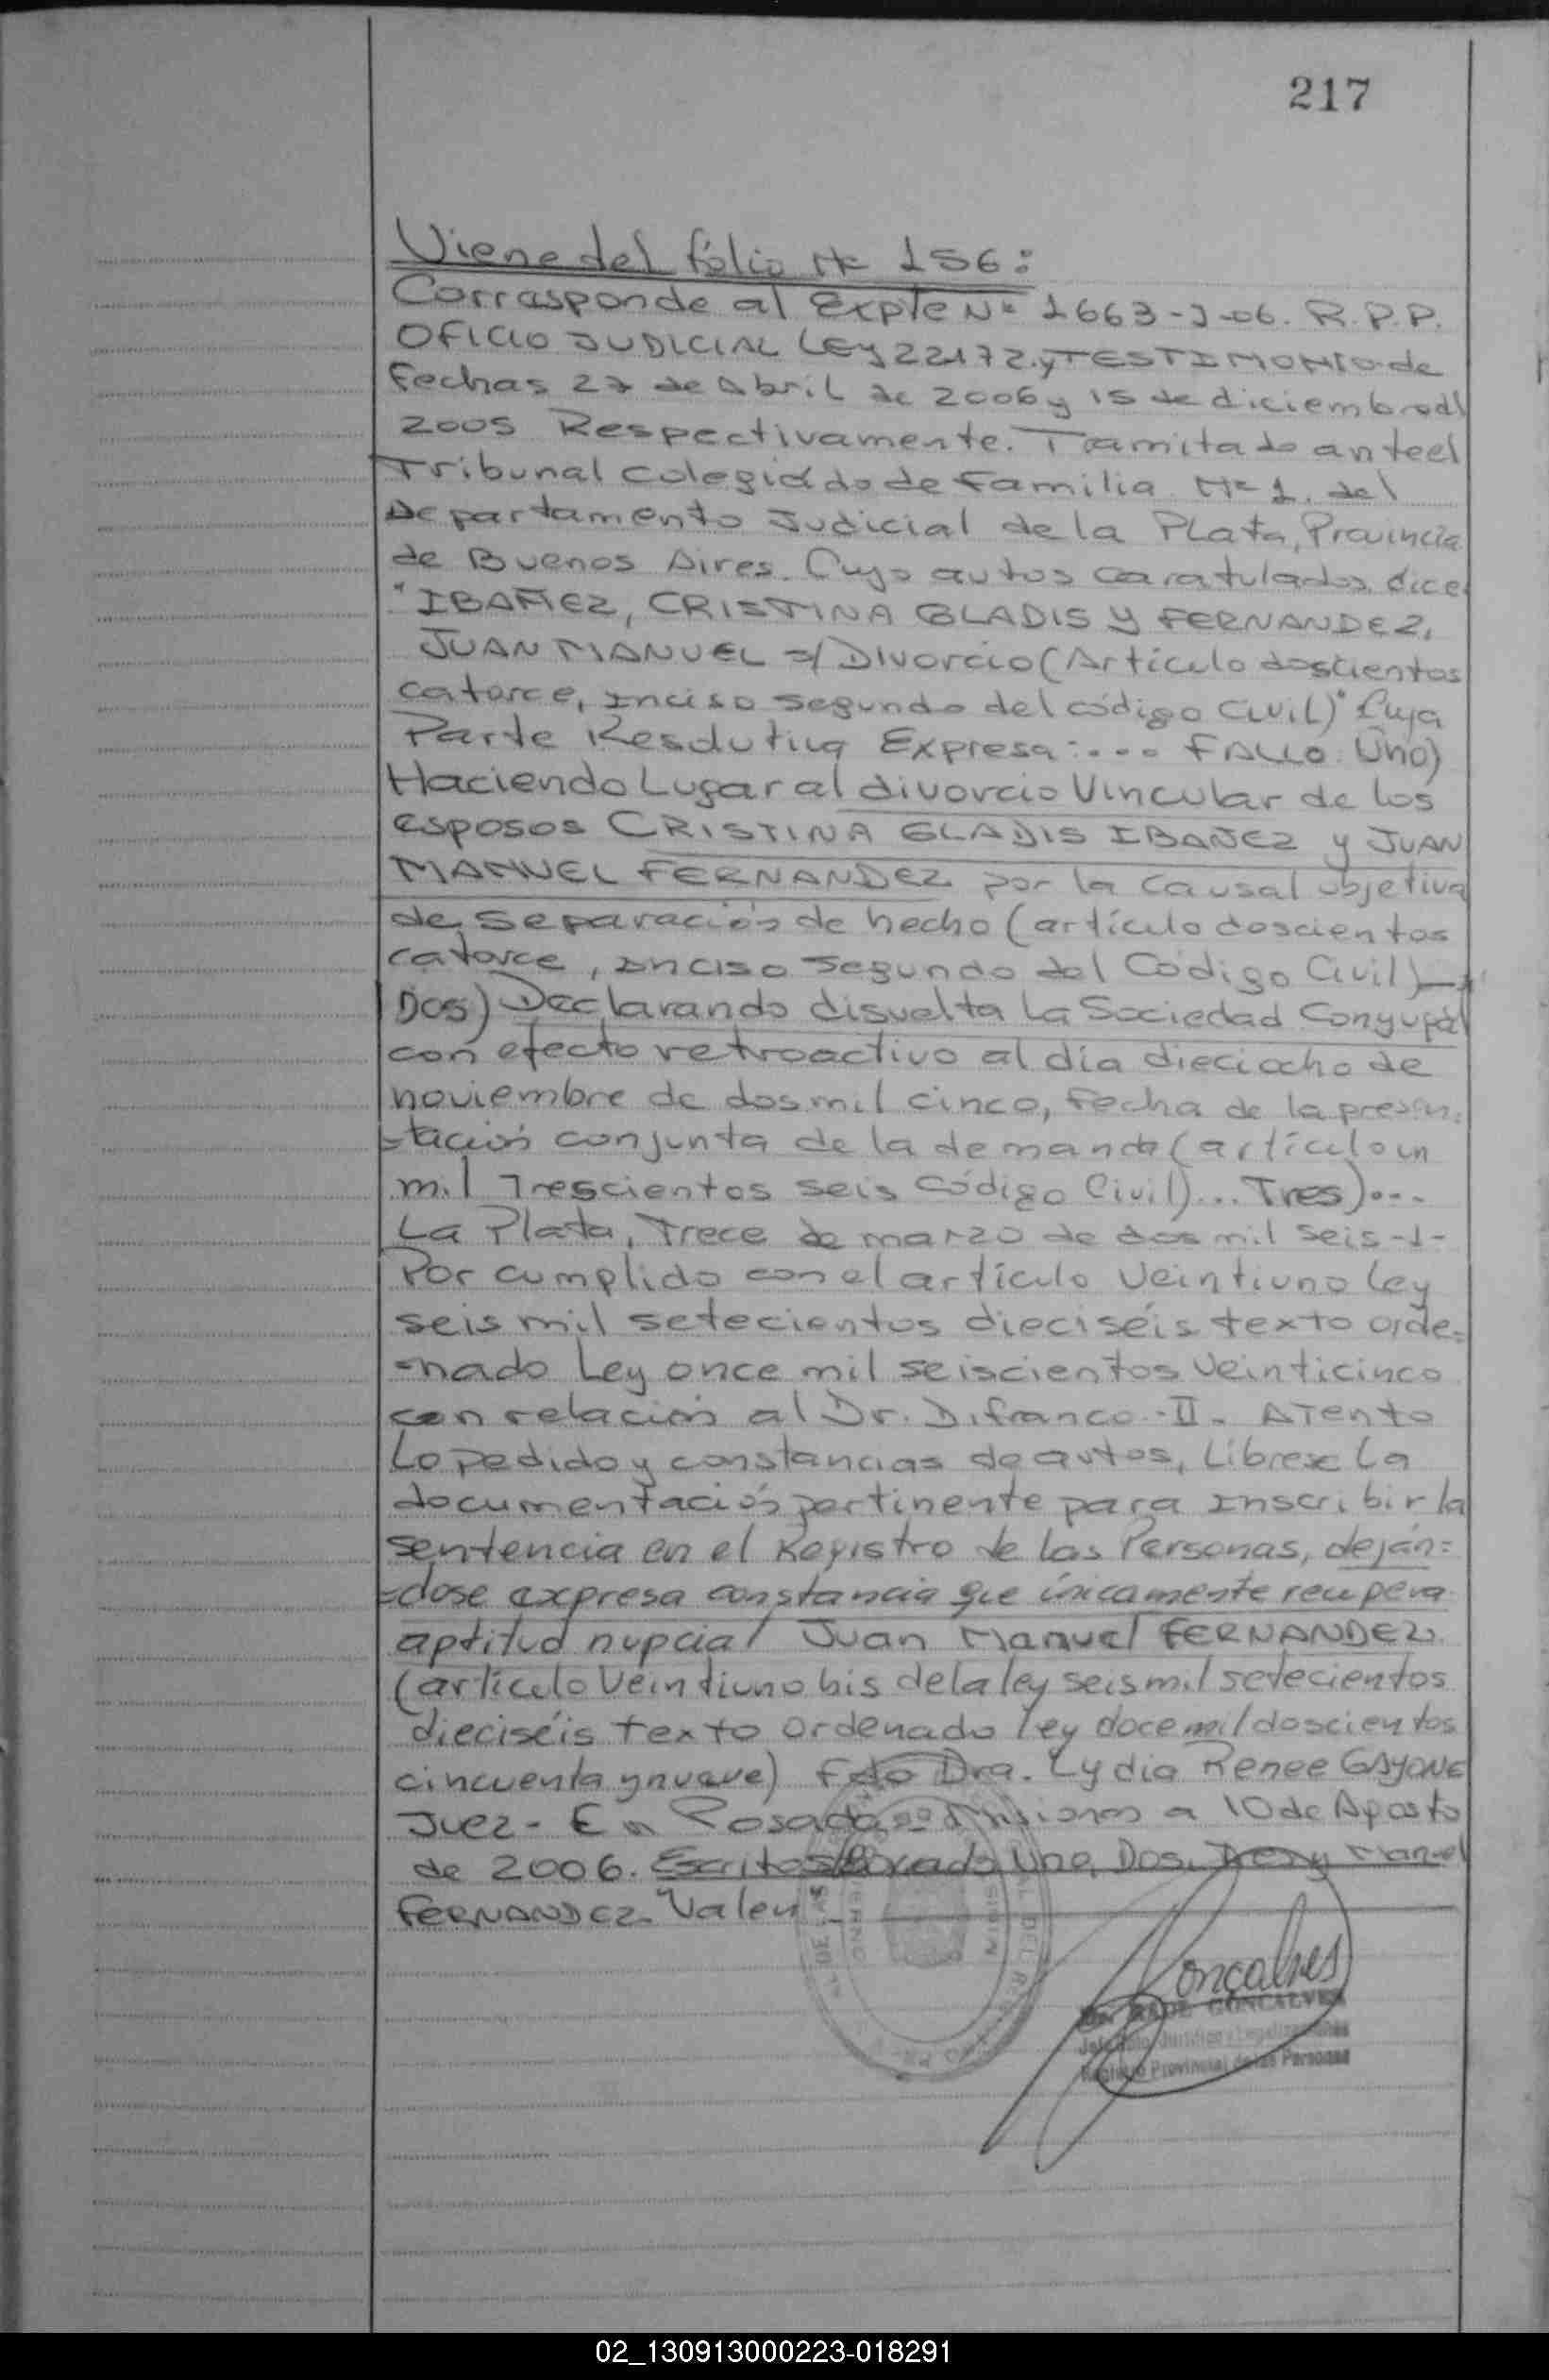 217
Viene del folio Nº 156:
Corresponde al Expte Nº 1663-J-06. R.P.P.
OFICIO JUDICIAL LEY 22172. y TESTIMONIO de
fechas 27 de abril de 2006 y 15 de diciembre del
2005 Respectivamente. Tramitado ante el
Tribunal colegiado de familia Nº 1. del
Departamento Judicial de la Plata, Provincia
de Buenos Aires. Cuyo autos caratulados dice:
"IBAÑEZ, CRISTINA GLADIS Y FERNANDEZ,
JUAN MANUEL S/ Divorcio (Artículo doscientos
catorce, inciso segundo del código CIVIL)" Cuya
Parte Resolutiva Expresa:.... FALLO: Uno)
Haciendo Lugar al divorcio Vincular de los
esposos CRISTINA GLADIS IBAÑEZ y JUAN
MANUEL FERNANDEZ por la causal objetiva
de separación de hecho (artículo doscientos
catorce, inciso segundo del Código Civil)
Dos) Declarando disuelta la Sociedad Conyugal
con efecto retroactivo al día dieciocho de
noviembre de dos mil cinco, fecha de la presen=
=tación conjunta de la demanda (artículo un
mil Trescientos seis código Civil)... Tres)...
La Plata, Trece de marzo de dos mil seis -I-
Por cumplido con el artículo veintiuno ley
seis mil setecientos dieciséis texto orde=
=nado Ley once mil seiscientos veinticinco
con relación al Dr. Difranco.-II- Atento
Lo pedido y constancias de autos, Librese la
documentación pertinente para inscribir la
sentencia en el Registro de las Personas, deján=
=dose expresa constancia que únicamente recupera
aptitud nupcial Juan Manuel FERNANDEZ
(artículo veintiuno bis de la ley seis mil setecientos
dieciséis texto ordenado ley doce mil doscientos
cincuenta y nueve) Fdo Dra. Lydia Renee GAYONE
Juez- En Posadas Misiones a 10 de Agosto
de 2006. Escritos Uno, Dos, Tres y Manuel
FERNANDEZ. Valen
Goncalves
GONCALVES
Jurídico y Legalizaciones
Registro Provincial de las Personas
02_130913000223-018291